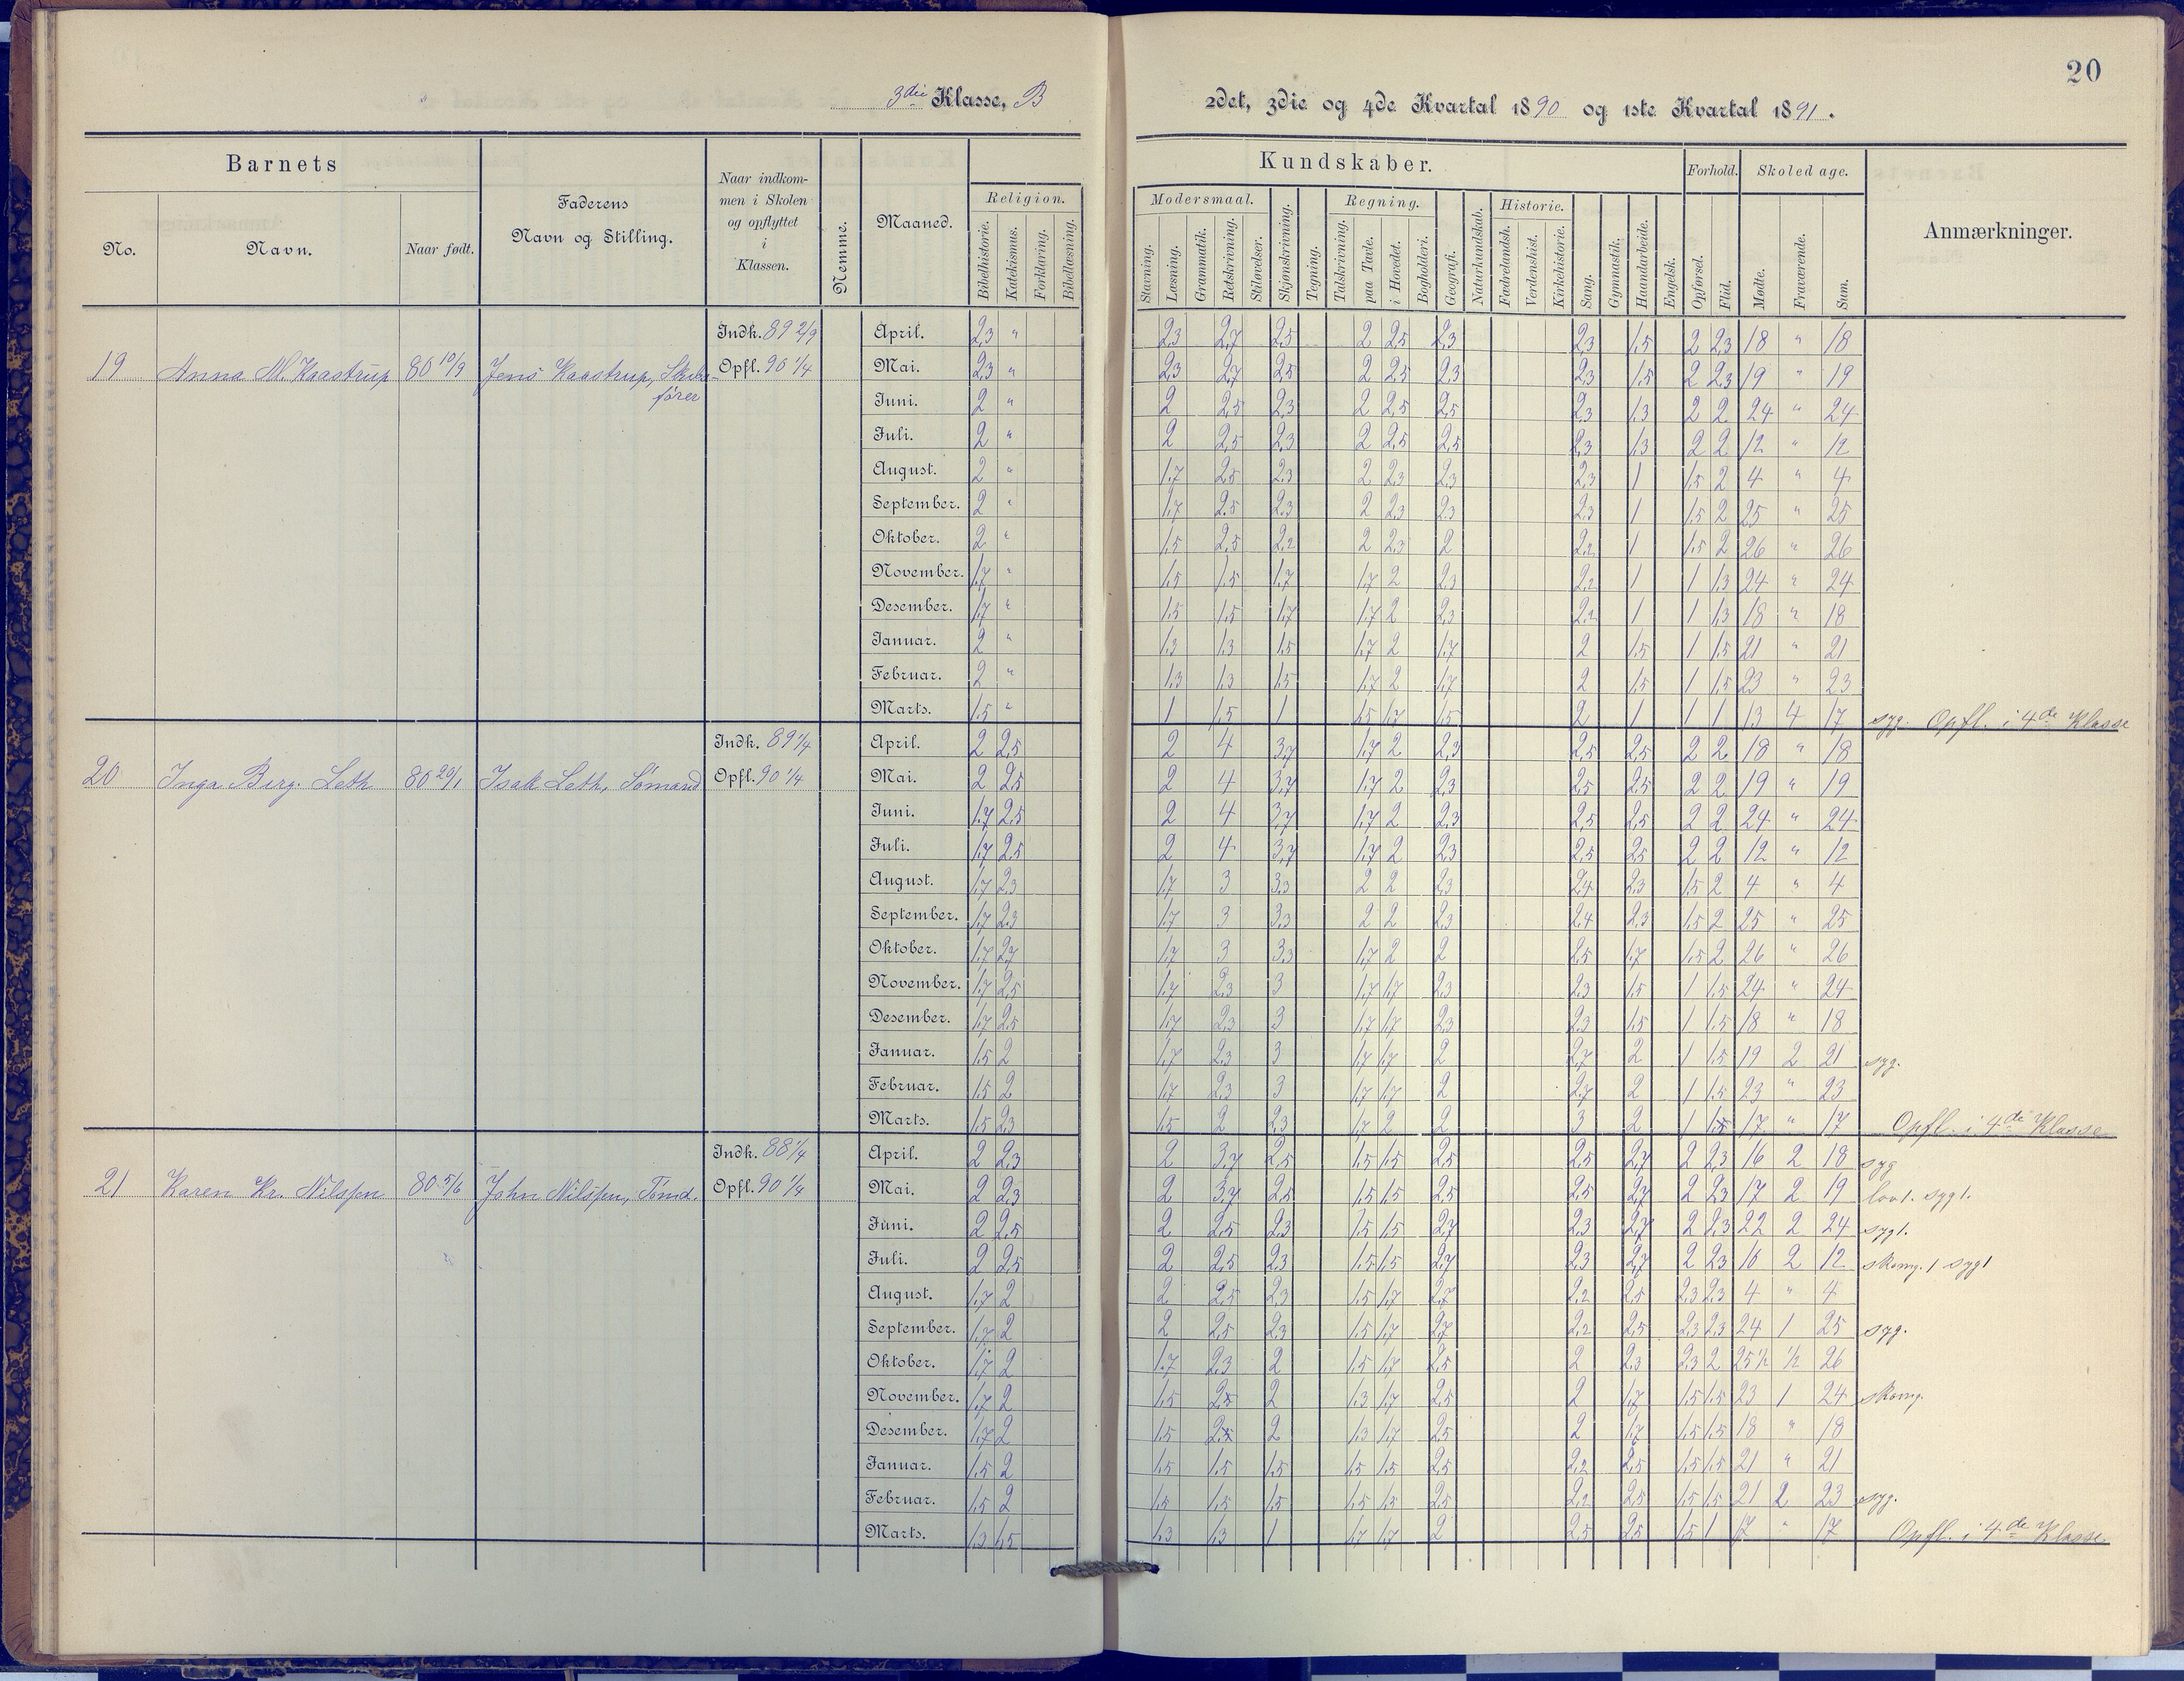 20
3die Klasse, B
2det, 3die og 4de Kvartal 1890 og 1ste Kvartal 1891.
Barnets
No.
Navn.
Naar født.
Faderens
Navn og Stilling.
Naar indkom-
men i Skolen
og opflyttet
i
Klassen.
Nemme.
Maaned.
Kundskaber.
Religion.
Bibelhistorie.
Katekismus.
Forklaring.
Bibellæsning.
Modersmaal.
Stavning.
Læsning.
Grammatik.
Retskrivning.
Stiløvelser.
Skjønskrivning.
Tegning.
Regning.
Talskrivning.
paa Tavle.
i Hovedet.
Bogholderi.
Geografi.
Naturkundskab.
Historie.
Fædrelandsh.
Verdenshist.
Kirkehistorie.
Sang.
Gymnastik.
Haandarbeide.
Engelsk.
Forhold.
Opførsel.
Flid.
Skoledage.
Mødte.
Fraværende.
Sum.
Anmærkninger.
19 Anna M. Kaastrup 80 10/9 Jens Kaastrup, Skibs-
fører
Indk. 89 2/9
Opfl. 90 1/4
April. 2,3 " 2,3 2,7 2,5 2 2,5 2,3 2,3 1,5 2 2,3 18 " 18
Mai. 2,3 " 2,3 2,7 2,5 2 2,5 2,3 2,3 1,5 2 2,3 19 " 19
Juni. 2 " 2 2,5 2,3 2 2,5 2,5 2,3 1,3 2 2 24 " 24
Juli. 2 " 2 2,5 2,3 2 2,5 2,5 2,3 1,3 2 2 12 " 12
August. 2 " 1,7 2,5 2,3 2 2,3 2,3 2,3 1 1,5 2 4 " 4
September. 2 " 1,7 2,5 2,3 2 2,3 2,3 2,3 1 1,5 2 25 " 25
Oktober. 2 " 1,5 2,5 2,2 2 2,3 2 2,2 1 1,5 2 26 " 26
November. 1,7 " 1,5 1,5 1,7 1,7 2 2,3 2,2 1 1 1,3 24 " 24
Desember. 1,7 " 1,5 1,5 1,7 1,7 2 2,3 2,2 1 1 1,3 18 " 18
Januar. 2 " 1,3 1,3 1,5 1,7 2 1,7 2 1,5 1 1,5 21 " 21
Februar. 2 " 1,3 1,3 1,5 1,7 2 1,7 2 1,5 1 1,5 23 " 23
Marts. 1,5 " 1 1,5 1 1,5 1,7 1,5 2 1 1 1 13 4 17 syg. Opfl. i 4de Klasse
20 Inga Berg. Leth 80 20/1 Isak Leth, Sømand
Indk. 89 1/4
Opfl. 90 1/4
April. 2 2,5 2 4 3,7 1,7 2 2,3 2,5 2,5 2 2 18 " 18
Mai. 2 2,5 2 4 3,7 1,7 2 2,3 2,5 2,5 2 2 19 " 19
Juni. 1,7 2,5 2 4 3,7 1,7 2 2,3 2,5 2,5 2 2 24 " 24
Juli. 1,7 2,5 2 4 3,7 1,7 2 2,3 2,5 2,5 2 2 12 " 12
August. 1,7 2,3 1,7 3 3,3 2 2 2,3 2,4 2,3 1,5 2 4 " 4
September. 1,7 2,3 1,7 3 3,3 2 2 2,3 2,4 2,3 1,5 2 25 " 25
Oktober. 1,7 2,7 1,7 3 3,3 1,7 2 2 2,5 1,7 1,5 2 26 " 26
November. 1,7 2,5 1,7 2,3 3 1,7 1,7 2,3 2,3 1,5 1 1,5 24 " 24
Desember. 1,7 2,5 1,7 2,3 3 1,7 1,7 2,3 2,3 1,5 1 1,5 18 " 18
Januar. 1,5 2 1,7 2,3 3 1,7 1,7 2 2,7 2 1 1,5 19 2 21 syg.
Februar. 1,5 2 1,7 2,3 3 1,7 1,7 2 2,7 2 1 1,5 23 " 23
Marts. 1,5 2,3 1,5 2 2,3 1,7 2 2 3 2 1 1,5 17 " 17 Opfl. i 4de Klasse
21 Karen Kr. Nilssen 80 5/6 John Nilssen, Tømd.
Indk. 88 1/4
Opfl. 90 1/4
April. 2 2,3 2 3,7 2,5 1,5 1,5 2,5 2,5 2,7 2 2,3 16 2 18 syg
Mai. 2 2,3 2 3,7 2,5 1,5 1,5 2,5 2,5 2,7 2 2,3 17 2 19 lov 1. syg 1.
Juni. 2 2,5 2 2,5 2,3 1,5 1,5 2,7 2,3 2,7 2 2,3 22 2 24 syg 1.
Juli. 2 2,5 2 2,5 2,3 1,5 1,5 2,7 2,3 2,7 2 2,3 10 2 12 1 syg 1
August. 1,7 2 2 2,5 2,3 1,5 1,7 2,7 2,2 2,5 2,3 2,3 4 " 4
September. 1,7 2 2 2,5 2,3 1,5 1,7 2,7 2,2 2,5 2,3 2,3 24 1 25 syg.
Oktober. 1,7 2 1,7 2,3 2 1,5 1,7 2,5 2 2,3 2,3 2 25 1/2 1/2 26
November. 1,7 2 1,5 2,5 2 1,3 1,7 2,5 2 1,7 1,5 1,5 23 1 24
Desember. 1,7 2 1,5 2,5 2 1,3 1,7 2,5 2 1,7 1,5 1,5 18 " 18
Januar. 1,5 2 1,5 1,5 1,5 1,5 1,5 2,5 2,2 2,5 1,5 1,5 21 " 21
Februar. 1,5 2 1,5 1,5 1,5 1,5 1,5 2,5 2,2 2,5 1,5 1,5 21 2 23 syg.
Marts. 1,3 1,5 1,3 1,3 1 1,7 1,7 2 2,5 2,5 1,5 1 17 " 17 Opfl. i 4de Klasse